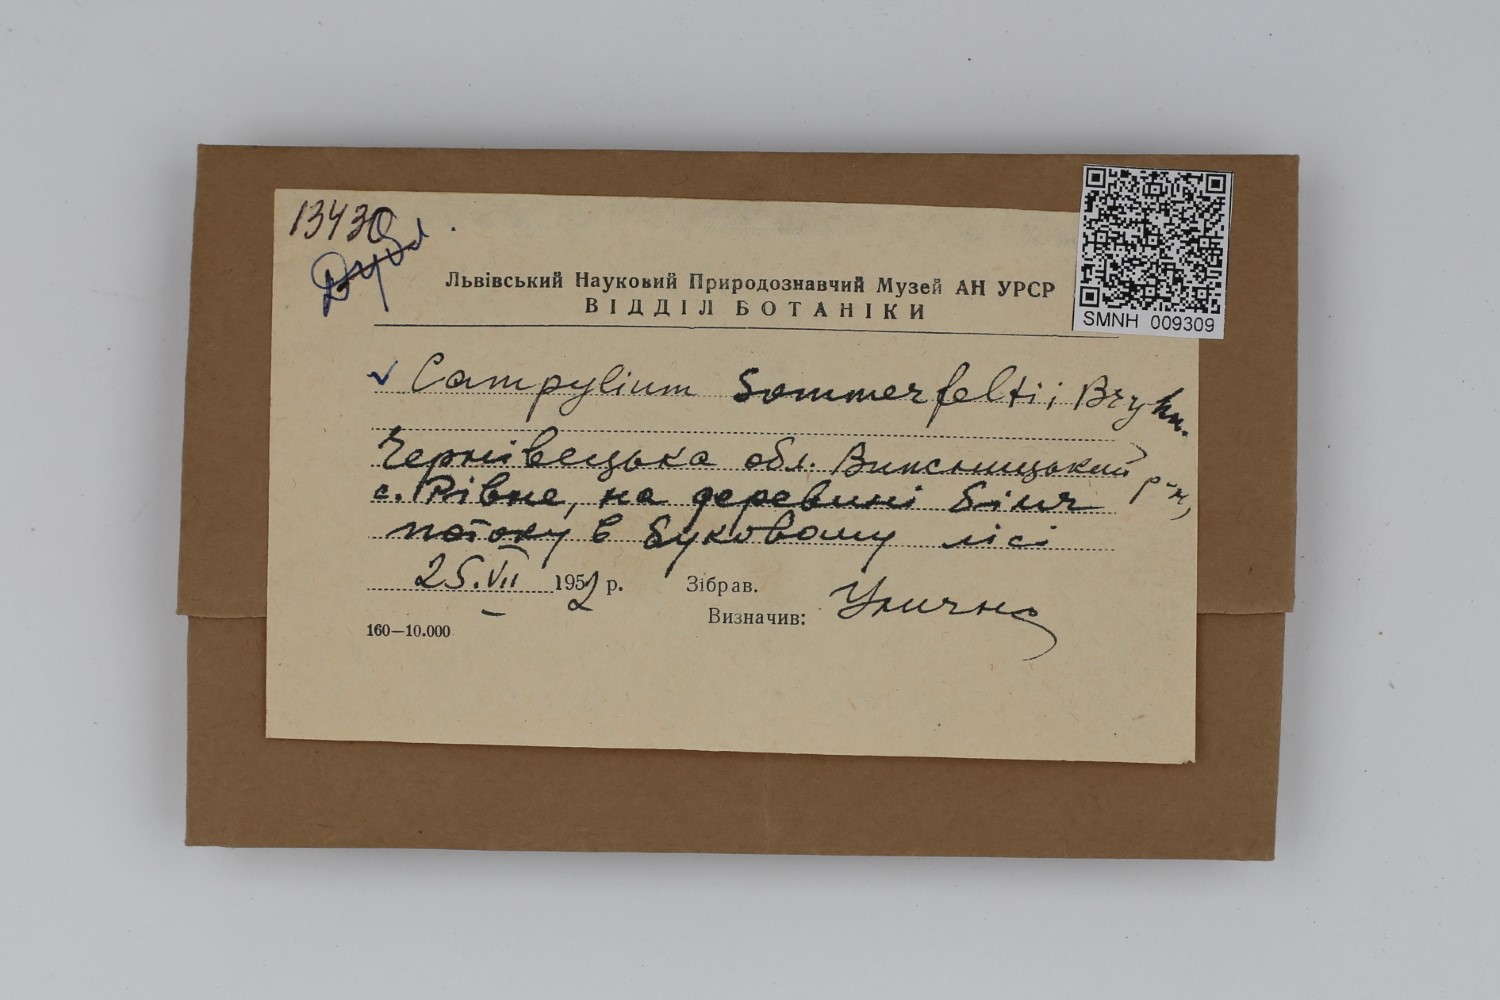 13430
Дубл.
Львівський Науковий Природознавчий Музей АН УРСР
ВІДДІЛ БОТАНІКИ
SMNH 009309
✓ Campylium Sommerfeltii Bryhn.
Чернівецька обл. Вижницький р-н,
с. Рівне, на деревині біля
потоку в буковому лісі
25.VII 1952 р. Зібрав.
Визначив: Улична
160—10.000